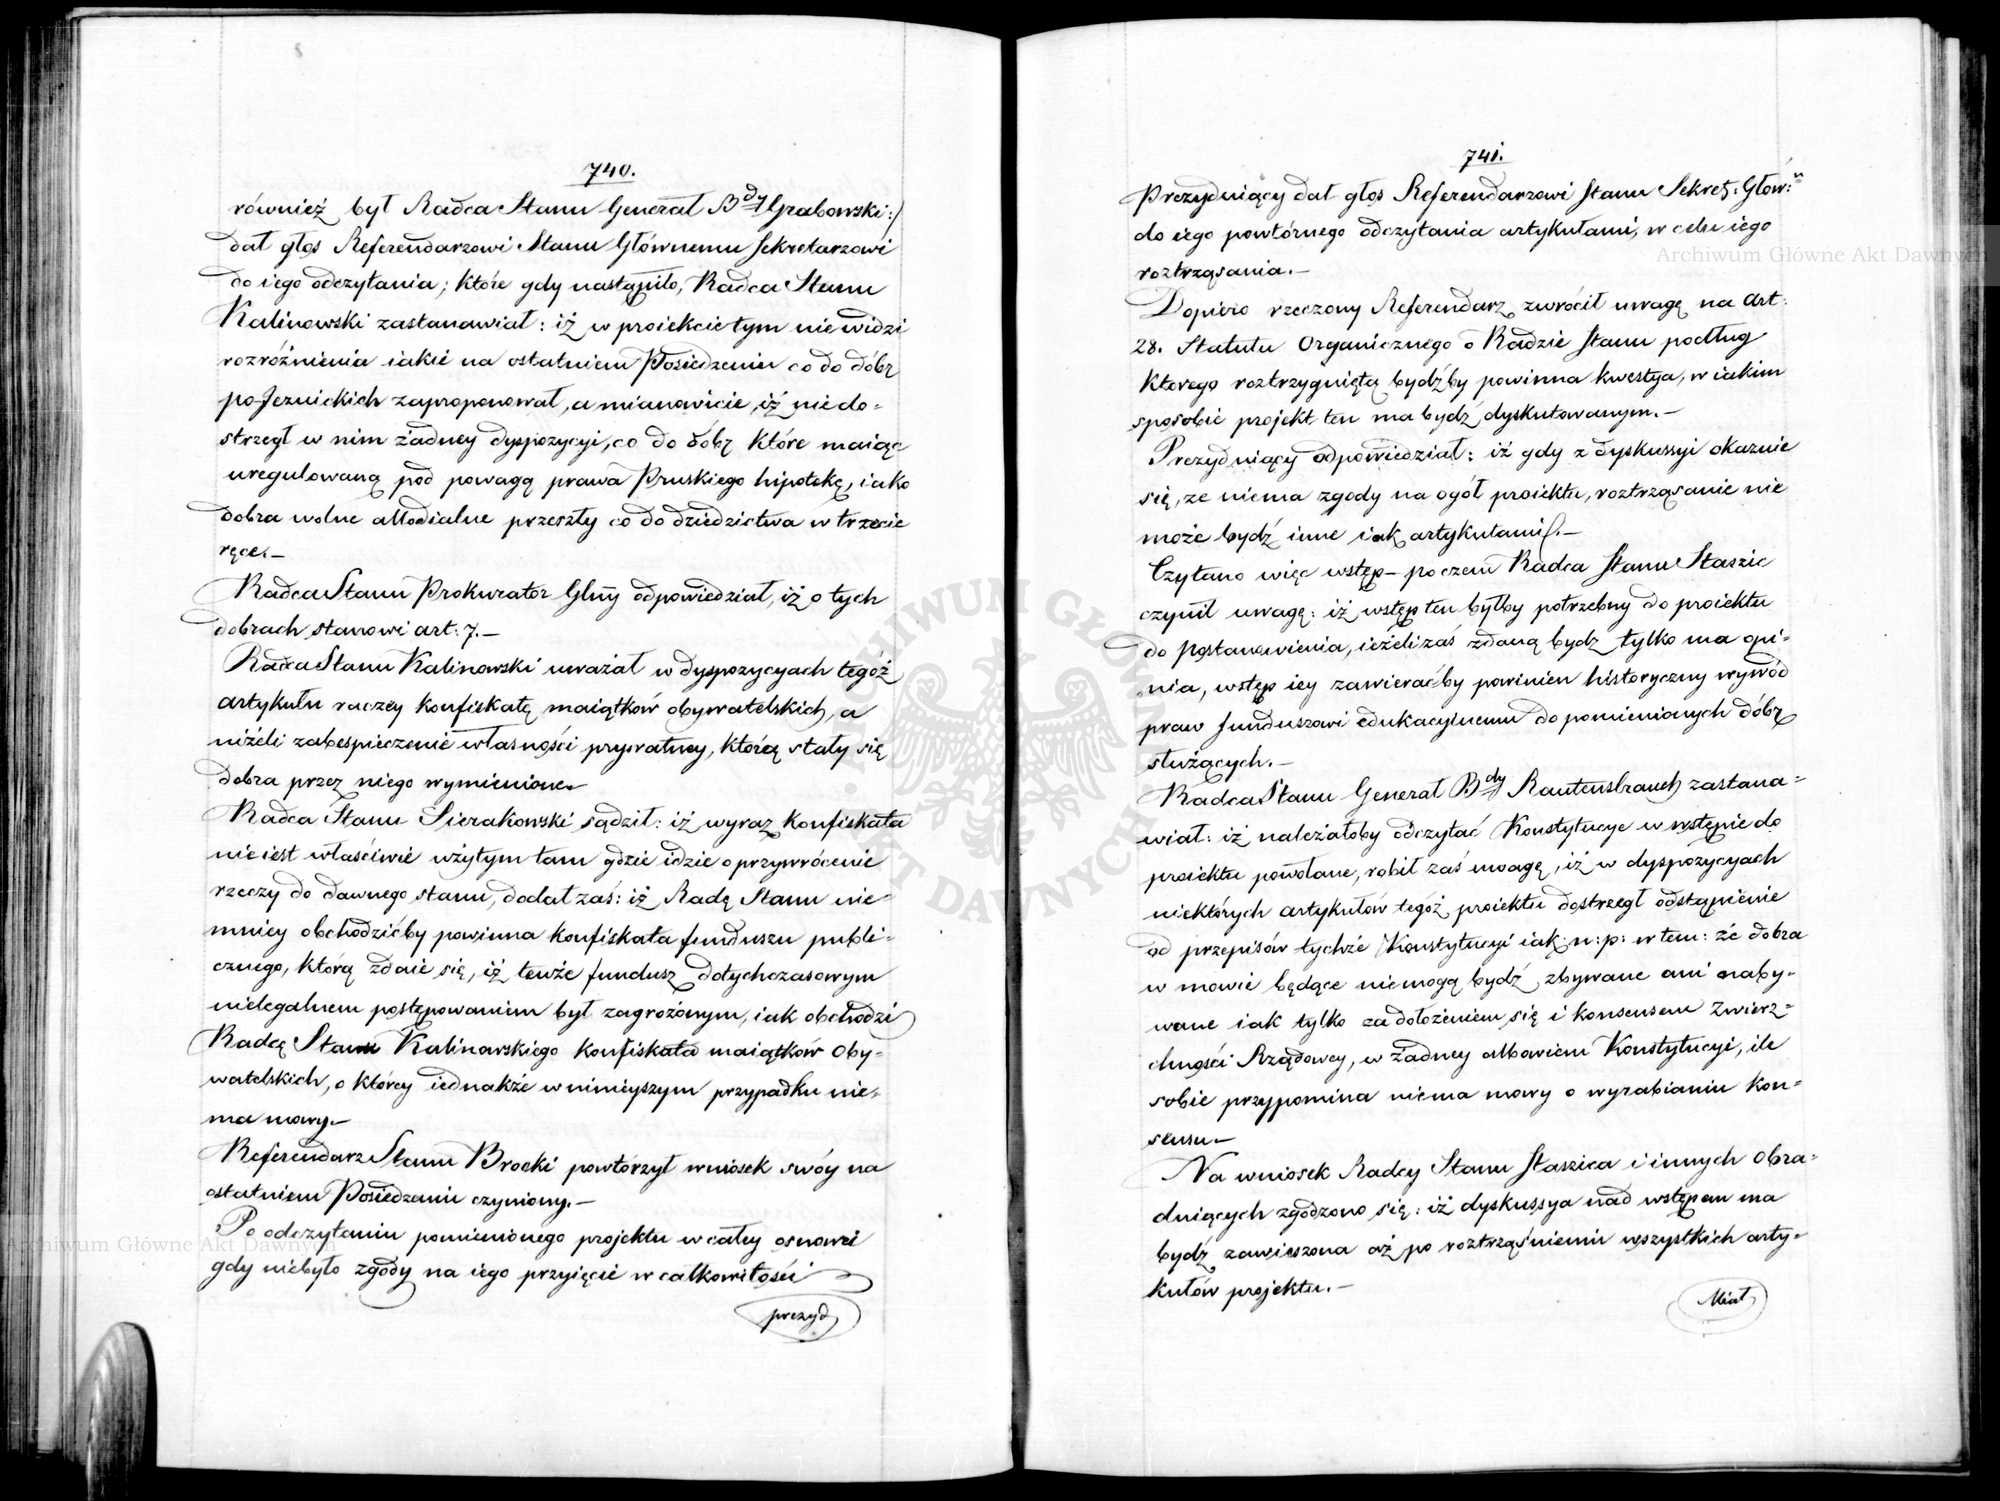 740.
również był Radca Stanu Generał Bdy Grabowski:/
dał głos Referendarzowi Stanu Głównemu Sekretarzowi
do iego odczytania; które gdy nastąpiło, Radca Stanu
Kalinowski zastanawiał: iż w proiekcie tym nie widzi
rozróżnienia iakie na ostatniem Posiedzeniu co do dóbr
po-Jezuickich zaproponował, a mianowicie, iż niedo=
strzegł w nim żadney dyspozycyi, co do dóbr które maiąc
uregulowaną pod powagą prawa Pruskiego hipotekę, iako
dobra wolne allodialne przeszły co do dziedzictwa w trzecie
ręce.—
Radca Stanu Prokurator Glny odpowiedział, iż o tych
dobrach stanowi art: 7.—
Radca Stanu Kalinowski uważał w dyspozycyach tegoż
artykułu raczey konfiskatę maiątków obywatelskich, a
niżeli zabespieczenie własności prywatney, którą stały się
dobra przez niego wymienione.—
Radca Stanu Sierakowski sądził: iż wyraz konfiskata
nie iest właściwie użytym tam gdzie idzie o przywrócenie
rzeczy do dawnego stanu, dodał zaś: iż Radę Stanu nie=
mniey obchodzićby powinna konfiskata funduszu publi=
cznego, którą zdaie się, iż tenże fundusz dotychczasowym
nielegalnem postępowaniem był zagrożonym, iak obchodzi
Radcę Stanu Kalinowskiego konfiskata maiątków oby=
watelskich, o którey iednakże w ninieyszym przypadku nie=
ma mowy.—
Referendarz Stanu Brocki powtórzył wniosek swóy na
ostatniem Posiedzeniu czyniony.—
Po odczytaniu pomienionego projektu w całey osnowi
gdy niebyło zgody na iego przyięcie w całkowitości
prezyd
741.
Prezyduiący dał głos Referendarzowi Stanu Sekret: Głów:u
do iego powtórnego odczytania artykułami, w celu iego
roztrząsania.—
Dopiero rzeczony Referendarz zwrócił uwagę na Art:
28. Statutu Organicznego o Radzie Stanu podług
którego roztrzygnięta bydźby powinna kwestya, w iakim
sposobie projekt ten ma bydź dyskutowanym.—
Prezyduiący odpowiedział: iż gdy z dyskussyi okazuie
się, że niema zgody na ogół proiektu, roztrząsanie nie
może bydź inne iak artykułami.—
Czytano więc wstęp — poczem Radca Stanu Staszic
czynił uwagę: iż wstęp ten byłby potrzebny do proiektu
do postanowienia, ieżeli zaś zdaną bydz tylko ma opi=
nia, wstęp iey zawieraćby powinien historyczny wywód
praw funduszowi edukacyinemu do pomienionych dóbr
służących.—
Radca Stanu Generał Bdy Rautenstrauch zastana=
wiał: iż należałoby odczytać Konstytucye w wstępie do
proiektu powołane, robił zaś uwagę, iż w dyspozycyach
niektórych artykułów tegóż proiektu dostrzegł odstąpienie
od przepisów tychże Konstytucyi iak: n: p: w tem: że dobra
w mowie będące niemogą bydź zbywane ani naby=
wane iak tylko za dołożeniem się i konsensem Zwierz=
chności Rządowey, w żadney albowiem Konstytucyi, ile
sobie przypomina niema mowy o wyrabianiu kon=
sensu.—
Na wniosek Radcy Stanu Staszica i innych obra=
duiących zgodzono się: iż dyskussya nad wstępem ma
bydź zawieszona aż po roztrząśnieniu wszystkich arty=
kułów projektu.—
Miał
Archiwum Główne Akt Dawnych
Archiwum Główne Akt Dawnych
ARCHIWUM GŁÓWNE AKT DAWNYCH